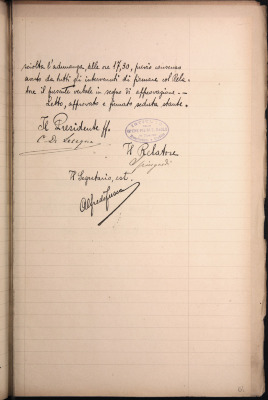 sciolta l'adunanza, alle ore 17,30, previo consenso
avuto da tutti gli intervenuti di firmare col Rela-
tore il presente verbale in segno di approvazione. -
Letto, approvato e firmato seduta stante. -
Il Presidente ff.
C. De
Il Relatore
Il Segretario, est.
Alfredo